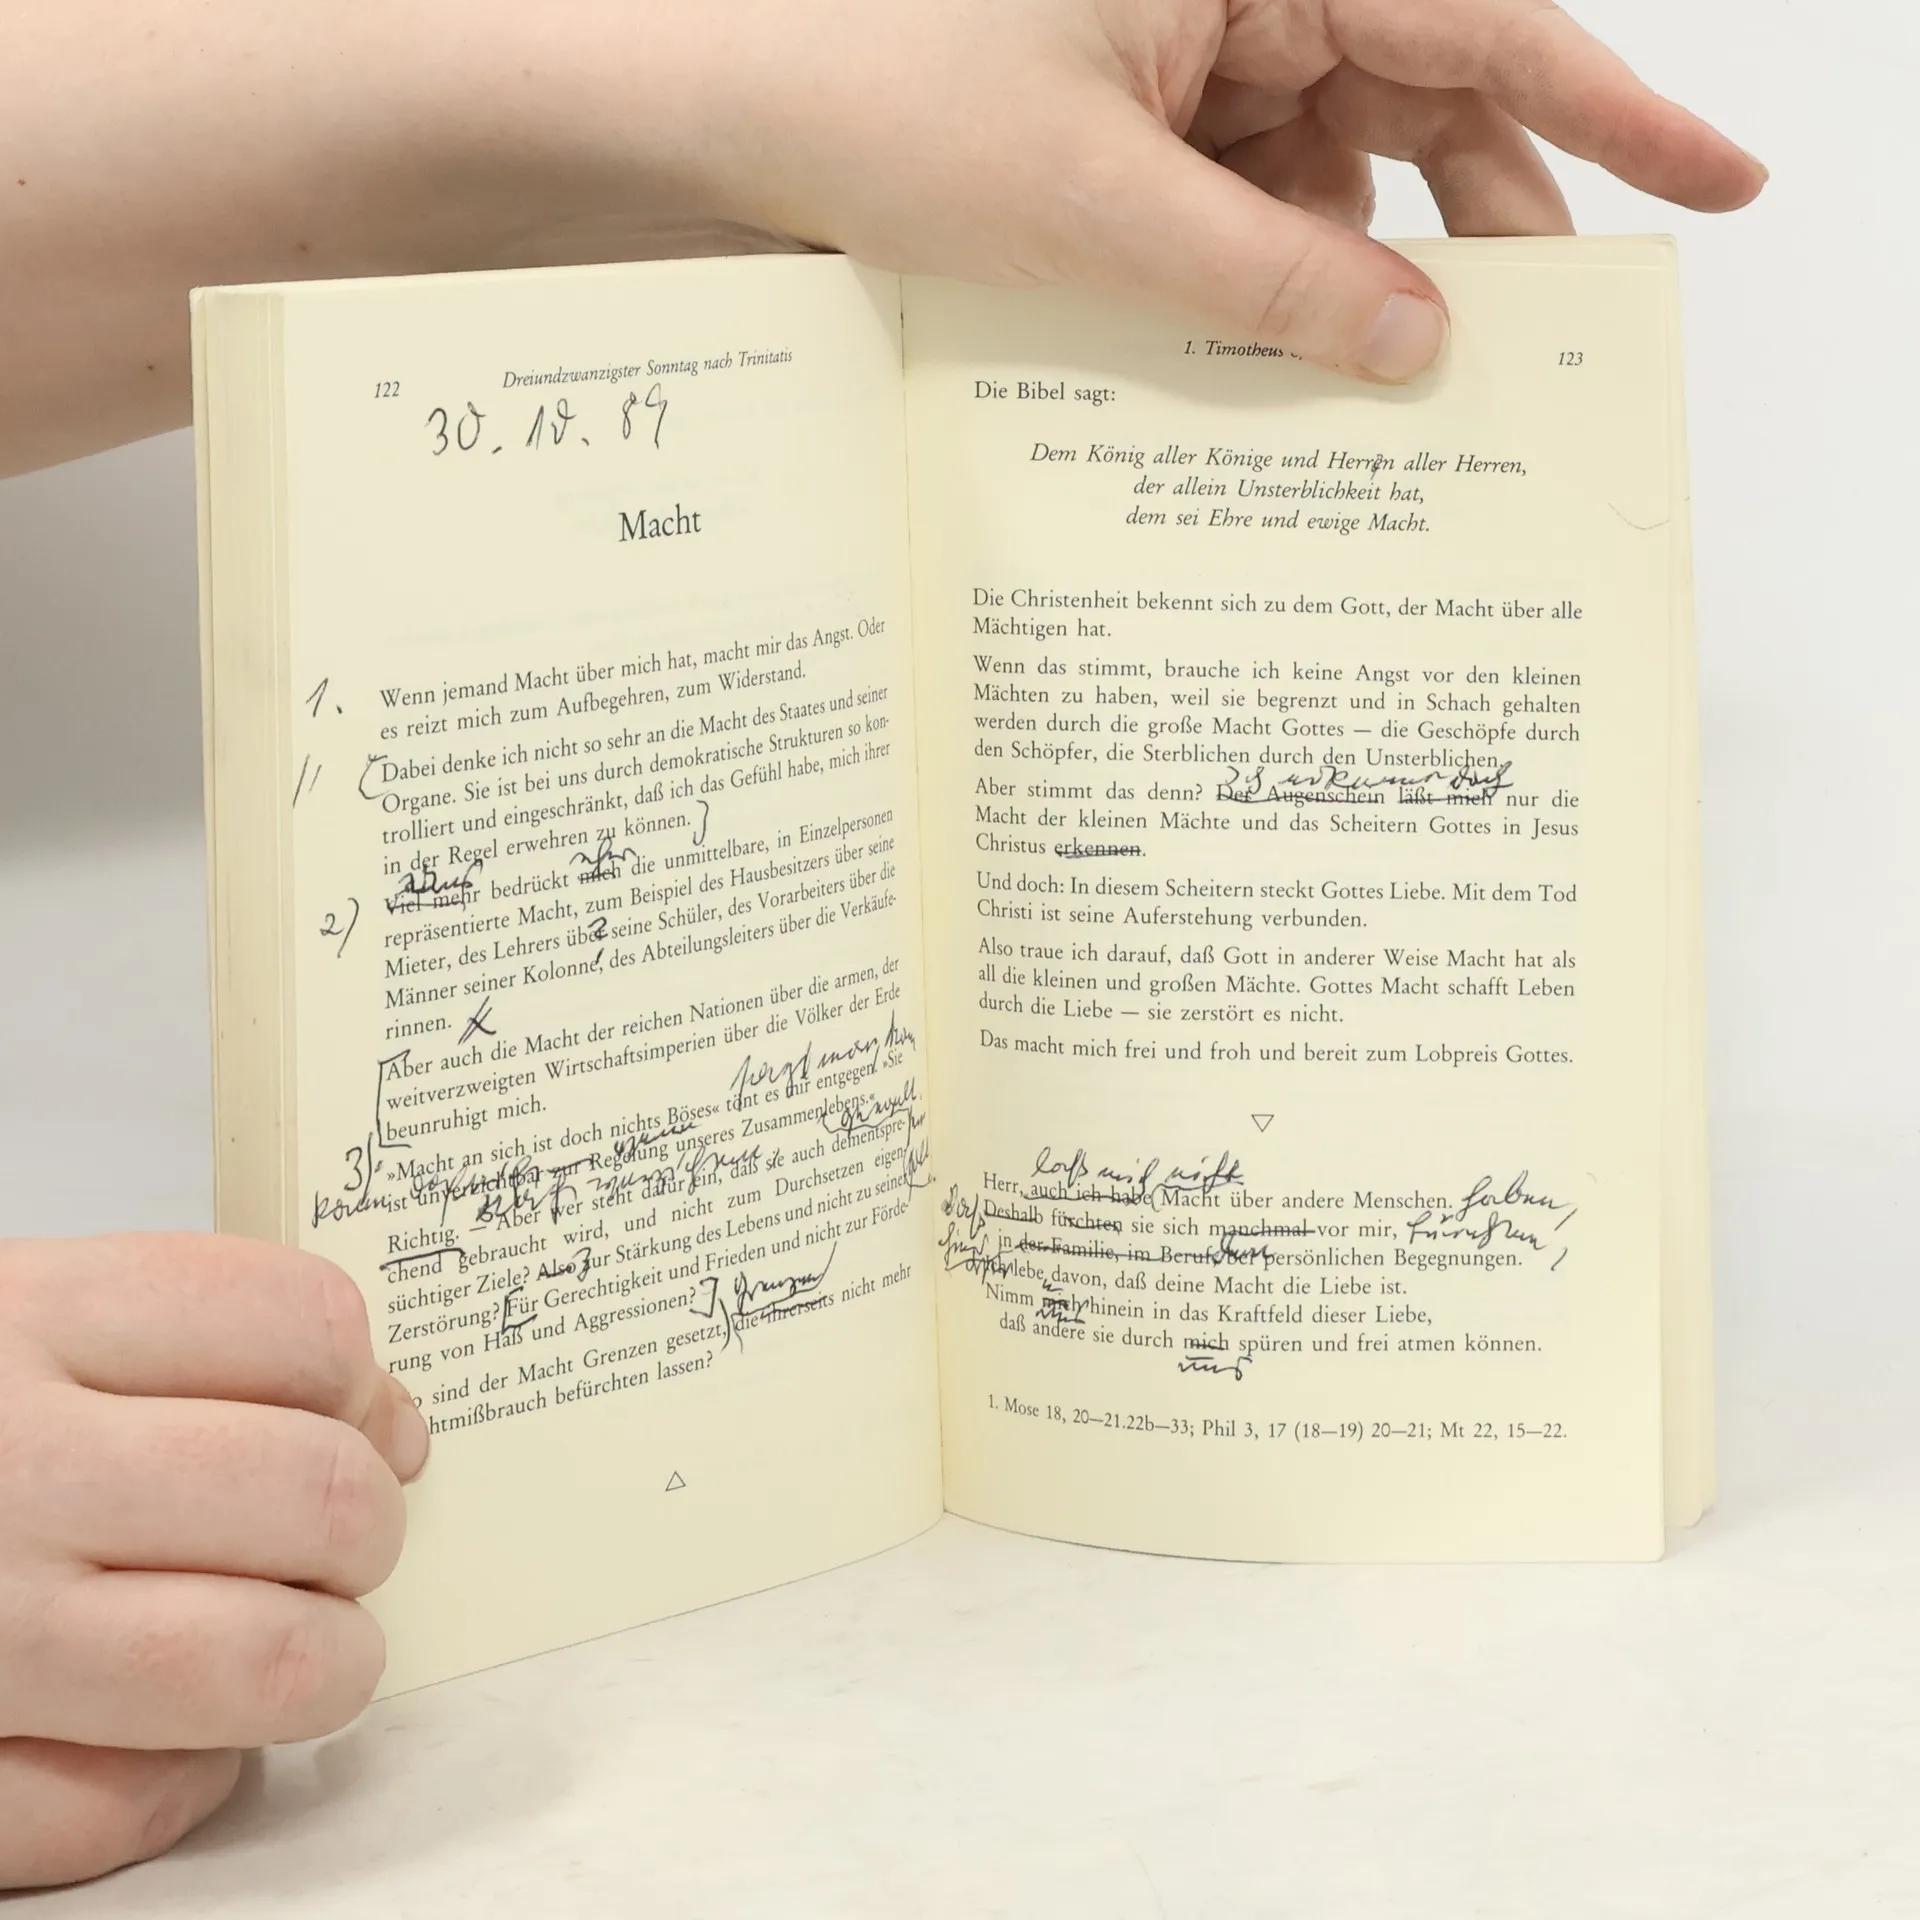 122
Dreiundzwanzigster Sonntag nach Trinitatis
30. 10. 89
Macht
1.
Wenn jemand Macht über mich hat, macht mir das Angst. Oder
es reizt mich zum Aufbegehren, zum Widerstand.
Dabei denke ich nicht so sehr an die Macht des Staates und seiner
Organe. Sie ist bei uns durch demokratische Strukturen so kon-
trolliert und eingeschränkt, daß ich das Gefühl habe, mich ihrer
in der Regel erwehren zu können.
2)
Viel mehr bedrückt mich die unmittelbare, in Einzelpersonen
repräsentierte Macht, zum Beispiel des Hausbesitzers über seine
Mieter, des Lehrers über seine Schüler, des Vorarbeiters über die
Männer seiner Kolonne, des Abteilungsleiters über die Verkäufe-
rinnen.
Aber auch die Macht der reichen Nationen über die armen, der
weitverzweigten Wirtschaftsimperien über die Völker der Erde
beunruhigt mich.
3)
»Macht an sich ist doch nichts Böses« tönt es mir entgegen. »Sie
ist unverzichtbar zur Regelung unseres Zusammenlebens.«
Richtig. — Aber wer steht dafür ein, daß sie auch dementspre-
chend gebraucht wird, und nicht zum Durchsetzen eigen-
süchtiger Ziele? Also zur Stärkung des Lebens und nicht zu seiner
Zerstörung? Für Gerechtigkeit und Frieden und nicht zur Förde-
rung von Haß und Aggressionen?
sind der Macht Grenzen gesetzt, die ihrerseits nicht mehr
befürchten lassen?
△
1. Timotheus
123
Die Bibel sagt:
Dem König aller Könige und Herren aller Herren,
der allein Unsterblichkeit hat,
dem sei Ehre und ewige Macht.
Die Christenheit bekennt sich zu dem Gott, der Macht über alle
Mächtigen hat.
Wenn das stimmt, brauche ich keine Angst vor den kleinen
Mächten zu haben, weil sie begrenzt und in Schach gehalten
werden durch die große Macht Gottes — die Geschöpfe durch
den Schöpfer, die Sterblichen durch den Unsterblichen.
Aber stimmt das denn? Der Augenschein läßt mich nur die
Macht der kleinen Mächte und das Scheitern Gottes in Jesus
Christus erkennen.
Und doch: In diesem Scheitern steckt Gottes Liebe. Mit dem Tod
Christi ist seine Auferstehung verbunden.
Also traue ich darauf, daß Gott in anderer Weise Macht hat als
all die kleinen und großen Mächte. Gottes Macht schafft Leben
durch die Liebe — sie zerstört es nicht.
Das macht mich frei und froh und bereit zum Lobpreis Gottes.
▽
laß mich nicht
Herr, auch ich habe Macht über andere Menschen. haben,
Deshalb fürchten sie sich manchmal vor mir, fürchten,
in der Familie, im Beruf, bei persönlichen Begegnungen.
Ich lebe davon, daß deine Macht die Liebe ist.
Nimm mich hinein in das Kraftfeld dieser Liebe,
daß andere sie durch mich spüren und frei atmen können.
uns
1. Mose 18, 20—21.22b—33; Phil 3, 17 (18—19) 20—21; Mt 22, 15—22.